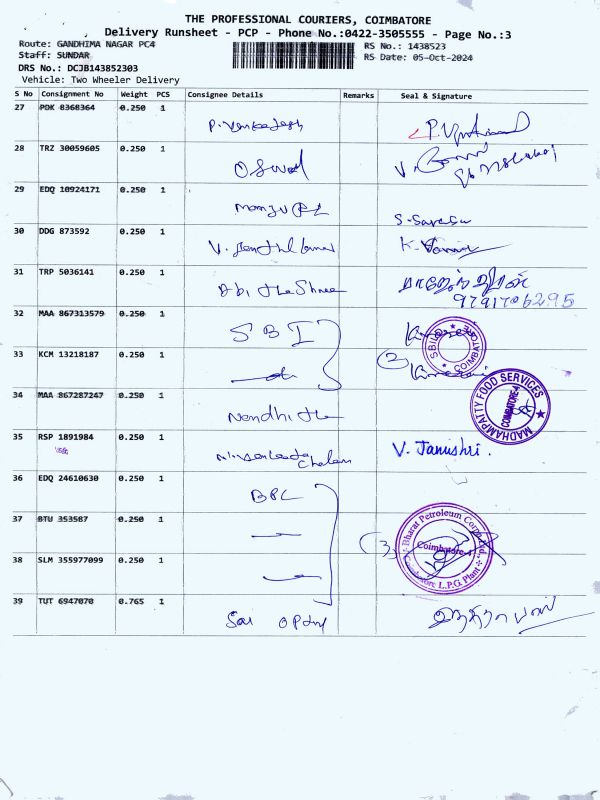 THE PROFESSIONAL COURIERS, COIMBATORE
Delivery Runsheet - PCP - Phone No.:0422-3505555 - Page No.:3
Route: GANDHIMA NAGAR PC4
RS No.: 1438523
Staff: SUNDAR
RS Date: 05-Oct-2024
DRS No.: DCJB143852303
Vehicle: Two Wheeler Delivery
S No Consignment No Weight PCS Consignee Details Remarks Seal & Signature
27 PDK 8368364 0.250 1
28 TRZ 30059605 0.250 1
29 EDQ 10924171 0.250 1
S. Sarasu
30 DDG 873592 0.250 1
31 TRP 5036141 0.250 1
9791706295
32 MAA 867313579 0.250 1 SBI
33 KCM 13218187 0.250 1
34 MAA 867287247 0.250 1
MADHAMPATTY FOOD SERVICES
COIMBATORE-4
35 RSP 1891984 0.250 1
V. Janushri.
36 EDQ 24610630 0.250 1
BPC
37 BTU 353587 0.250 1
Bharat Petroleum
Coimbatore-4
L.P.G. Plant
38 SLM 355977099 0.250 1
39 TUT 6947070 0.765 1
Sai